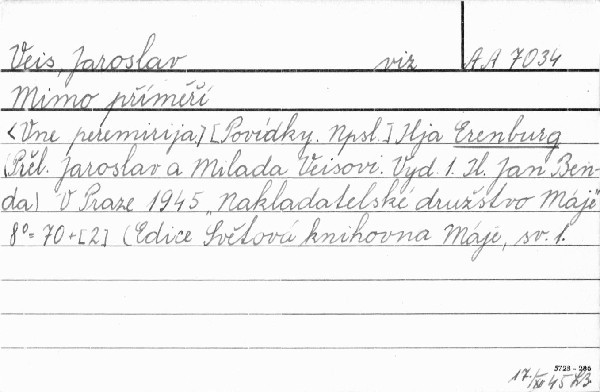 Veis, Jaroslav viz AA 7034
Mimo příměří
<Vne peremirija> [Povídky. Npsl.] Ilja Erenburg
(Přel. Jaroslav a Milada Veisovi. Vyd. 1. Il. Jan Ben-
da) V Praze 1945 „Nakladatelské družstvo Máje"
8°= 70+[2] (Edice Světová knihovna Máje, sv. 1.
5723 - 286
17/XII 45